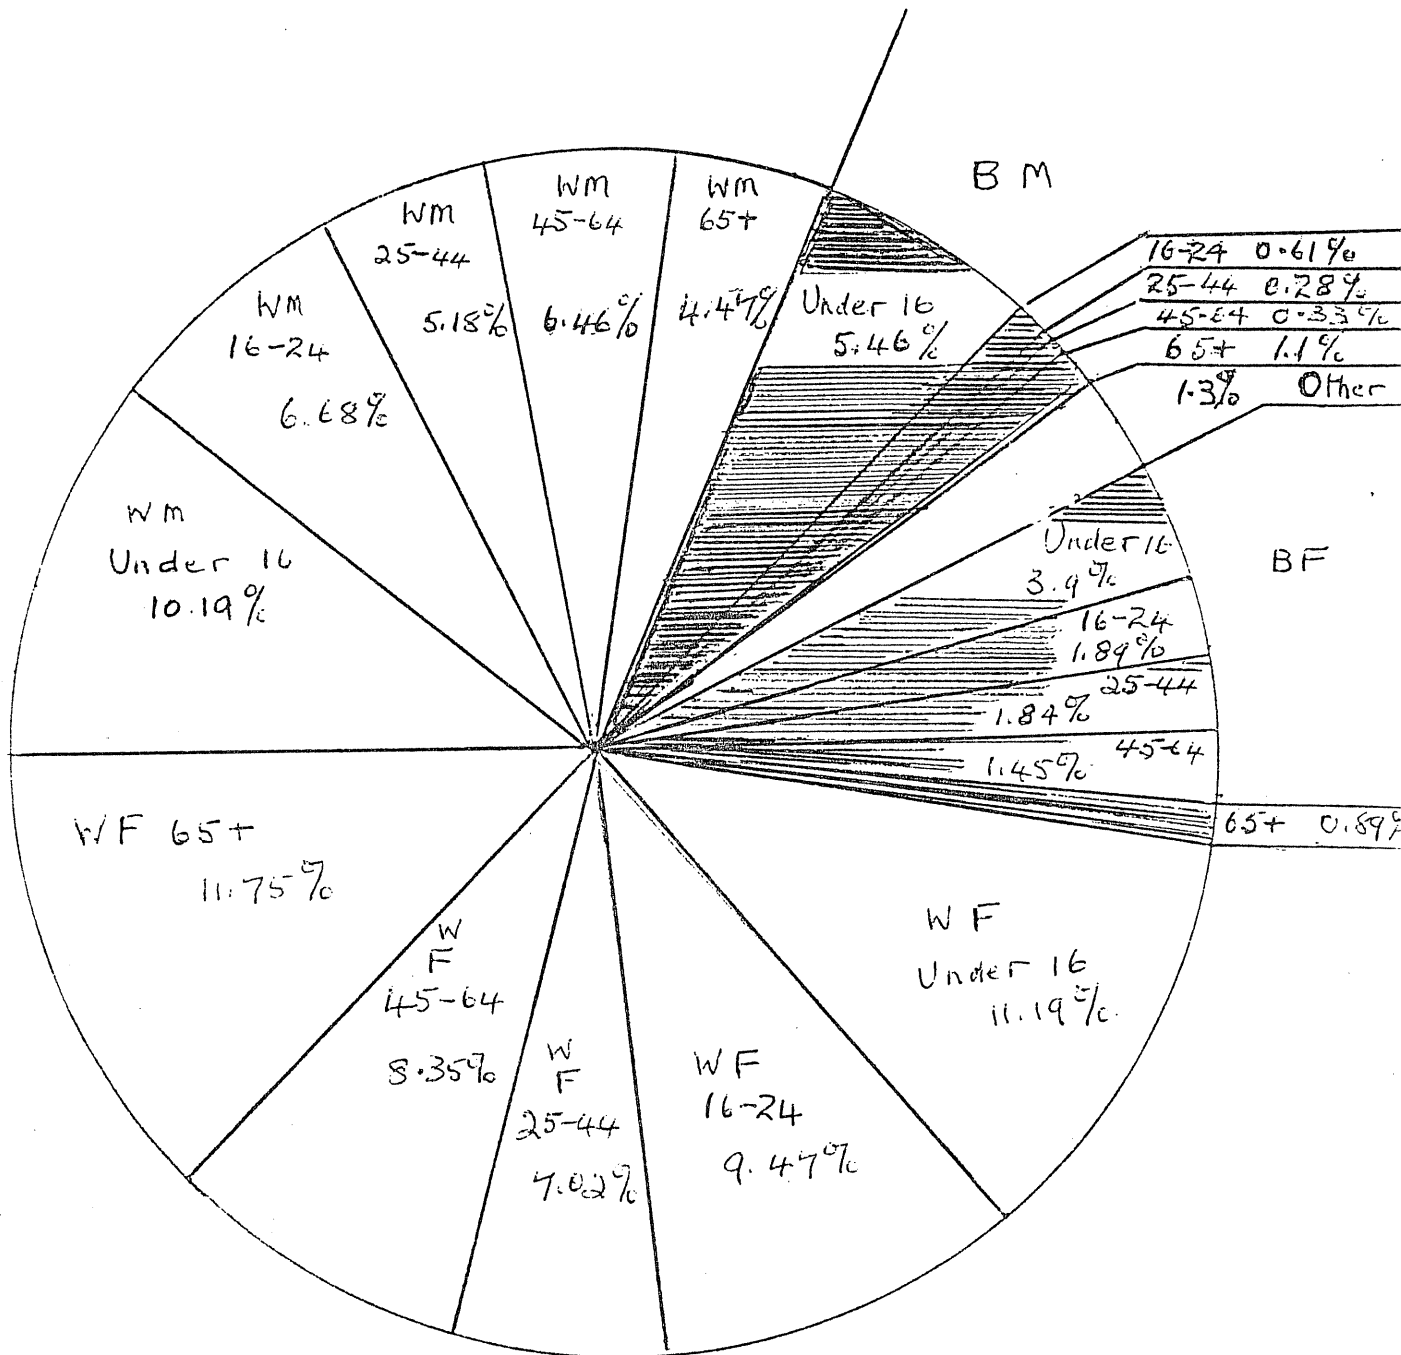 B M
WM
45-64
6.46%
WM
65+
4.47%
WM
25-44
5.18%
WM
16-24
6.68%
Under 16
5.46%
16-24 0.61%
25-44 0.28%
45-64 0.33%
65+ 1.1%
1.3% Other
BF
Under 16
3.9%
16-24
1.89%
25-44
1.84%
45-64
1.45%
65+ 0.89%
WM
Under 16
10.19%
WF 65+
11.75%
W
F
45-64
8.35%
W
F
25-44
7.02%
WF
16-24
9.47%
WF
Under 16
11.19%